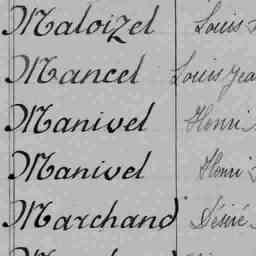 Maloizel Louis
Mancel Louis Jea
Manivel Henri
Manivel Henri
Marchand Désiré